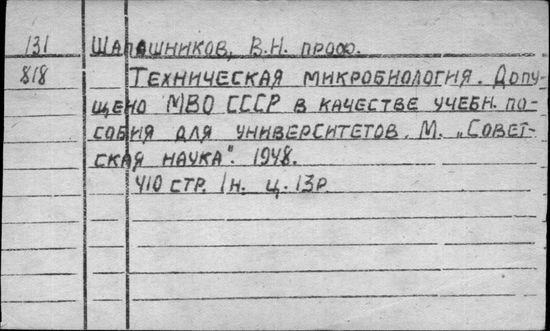 131 Шапошников, В.Н. проф.
818 Техническая микробиология. Допу-
щено МВО СССР в качестве учебн. по-
собия для университетов. М. „Совет-
ская наука“. 1948.
410 стр. 1н. ц. 13р.